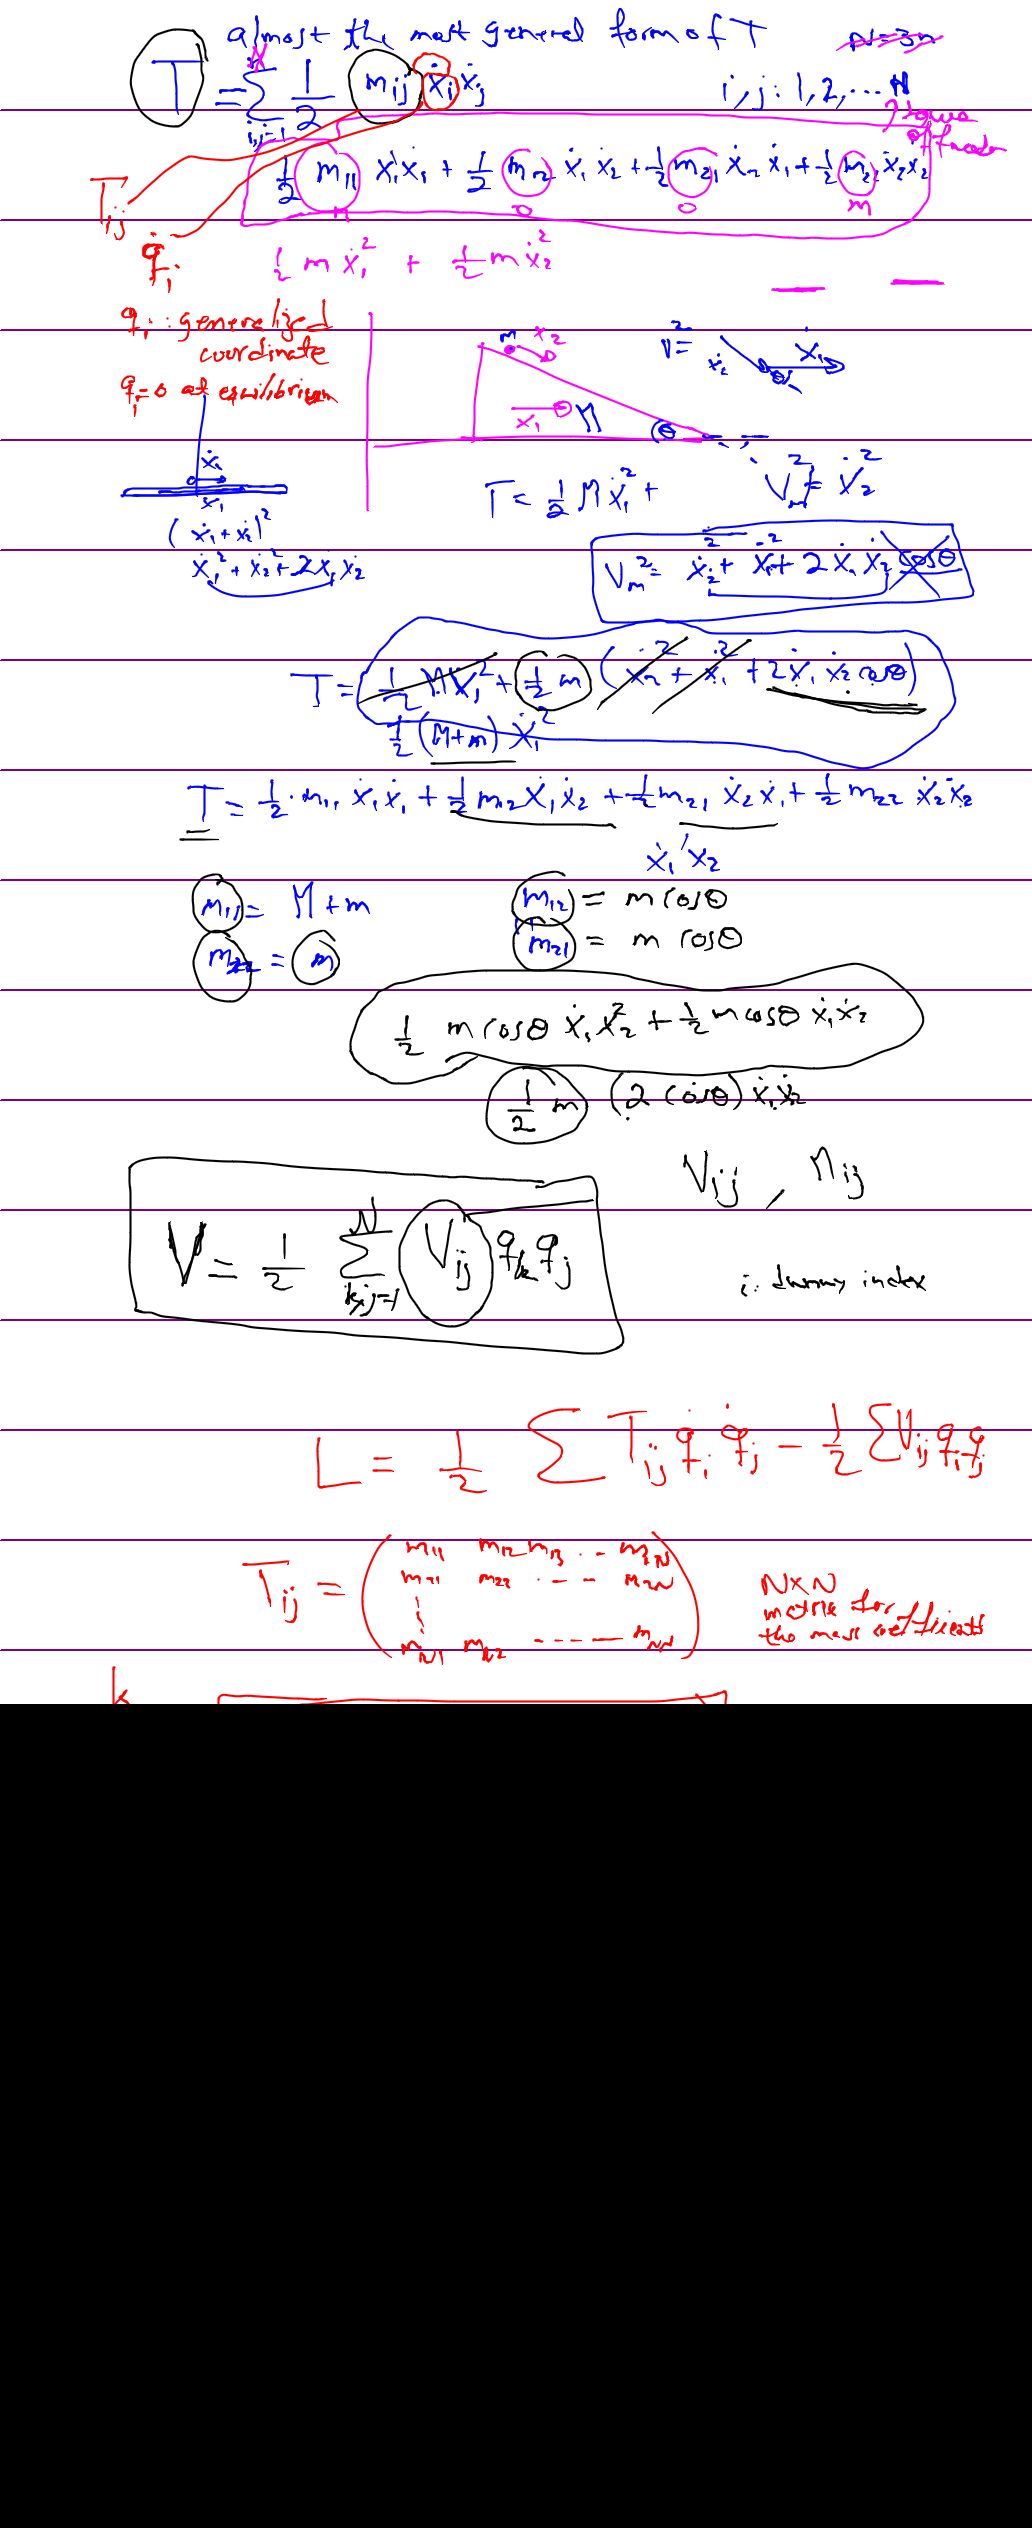 almost the most general form of T N=3n
T = Σ_{i,j=1}^{N} 1/2 m_ij ẋ_i ẋ_j i, j : 1, 2, ... N
degrees
of freedom
1/2 m_11 ẋ_1 ẋ_1 + 1/2 m_12 ẋ_1 ẋ_2 + 1/2 m_21 ẋ_2 ẋ_1 + 1/2 m_22 ẋ_2 ẋ_2
T_ij
m 0 0 m
q̇_i
1/2 m ẋ_1² + 1/2 m ẋ_2²
q_i : generalized
coordinate
q_i = 0 at equilibrium
m x_2
V² = ẋ_2 ẋ_1 θ
x_1 M θ
ẋ_2
x_1
T = 1/2 M ẋ_1² + V_m² = ẋ_2²
(ẋ_1 + ẋ_2)²
ẋ_1² + ẋ_2² + 2ẋ_1 ẋ_2
V_m² = ẋ_2² + ẋ_1² + 2 ẋ_1 ẋ_2 cosθ
T = 1/2 M ẋ_1² + 1/2 m (ẋ_2² + ẋ_1² + 2ẋ_1 ẋ_2 cosθ)
1/2 (M+m) ẋ_1²
T = 1/2 · m_11 ẋ_1 ẋ_1 + 1/2 m_12 ẋ_1 ẋ_2 + 1/2 m_21 ẋ_2 ẋ_1 + 1/2 m_22 ẋ_2 ẋ_2
ẋ_1 ẋ_2
m_11 = M + m m_12 = m cosθ
m_22 = m m_21 = m cosθ
1/2 m cosθ ẋ_1 ẋ_2 + 1/2 m cosθ ẋ_1 ẋ_2
1/2 m (2 cosθ) ẋ_1 ẋ_2
V_ij , m_ij
V = 1/2 Σ_{k,j=1}^{N} V_ij q_k q_j
i : dummy index
L = 1/2 Σ T_ij q̇_i q̇_j − 1/2 Σ V_ij q_i q_j
T_ij = ( m_11 m_12 m_13 ... m_1N
m_21 m_22 . - - m_2N
m_N1 m_N2 ------ m_NN )
N×N
matrix for
the mass coefficients
k